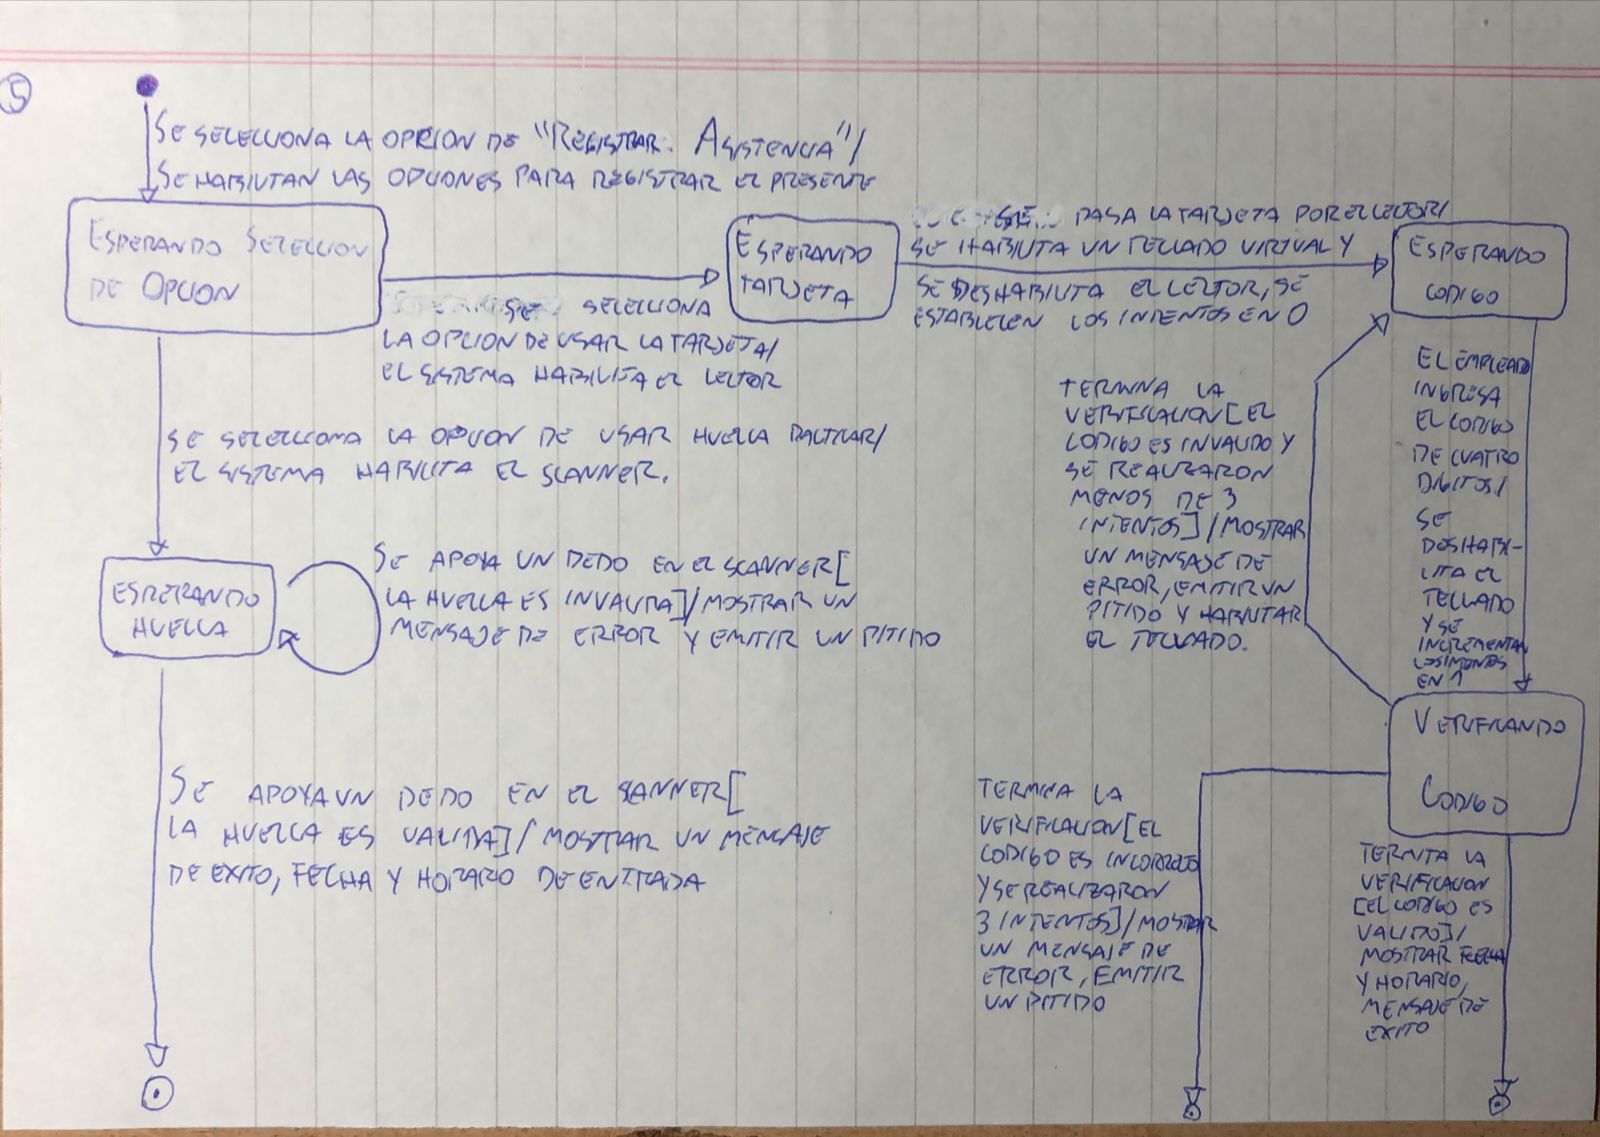 5
SE SELECCIONA LA OPCION DE "REGISTRAR ASISTENCIA"/
SE HABILITAN LAS OPCIONES PARA REGISTRAR EL PRESENTE
ESPERANDO SELECCION
DE OPCION
SE SELECCIONA
LA OPCION DE USAR LA TARJETA/
EL SISTEMA HABILITA EL LECTOR
ESPERANDO
TARJETA
SE PASA LA TARJETA POR EL LECTOR/
SE HABILITA UN TECLADO VIRTUAL Y
SE DESHABILITA EL LECTOR, SE
ESTABLECEN LOS INTENTOS EN 0
ESPERANDO
CODIGO
EL EMPLEADO
INGRESA
EL CODIGO
DE CUATRO
DIGITOS/
SE
DESHABI-
LITA EL
TECLADO
Y SE
INCREMENTAN
LOS INTENTOS
EN 1
TERMINA LA
VERIFICACION [EL
CODIGO ES INVALIDO Y
SE REALIZARON
MENOS DE 3
INTENTOS]/MOSTRAR
UN MENSAJE DE
ERROR, EMITIR UN
PITIDO Y HABILITAR
EL TECLADO.
SE SELECCIONA LA OPCION DE USAR HUELLA DACTILAR/
EL SISTEMA HABILITA EL SCANNER.
ESPERANDO
HUELLA
SE APOYA UN DEDO EN EL SCANNER[
LA HUELLA ES INVALIDA]/MOSTRAR UN
MENSAJE DE ERROR Y EMITIR UN PITIDO
VERIFICANDO
CODIGO
SE APOYA UN DEDO EN EL SCANNER[
LA HUELLA ES VALIDA]/MOSTRAR UN MENSAJE
DE EXITO, FECHA Y HORARIO DE ENTRADA
TERMINA LA
VERIFICACION [EL
CODIGO ES INCORRECTO
Y SE REALIZARON
3 INTENTOS]/MOSTRAR
UN MENSAJE DE
ERROR, EMITIR
UN PITIDO
TERMINA LA
VERIFICACION
[EL CODIGO ES
VALIDO]/
MOSTRAR FECHA
Y HORARIO,
MENSAJE DE
EXITO